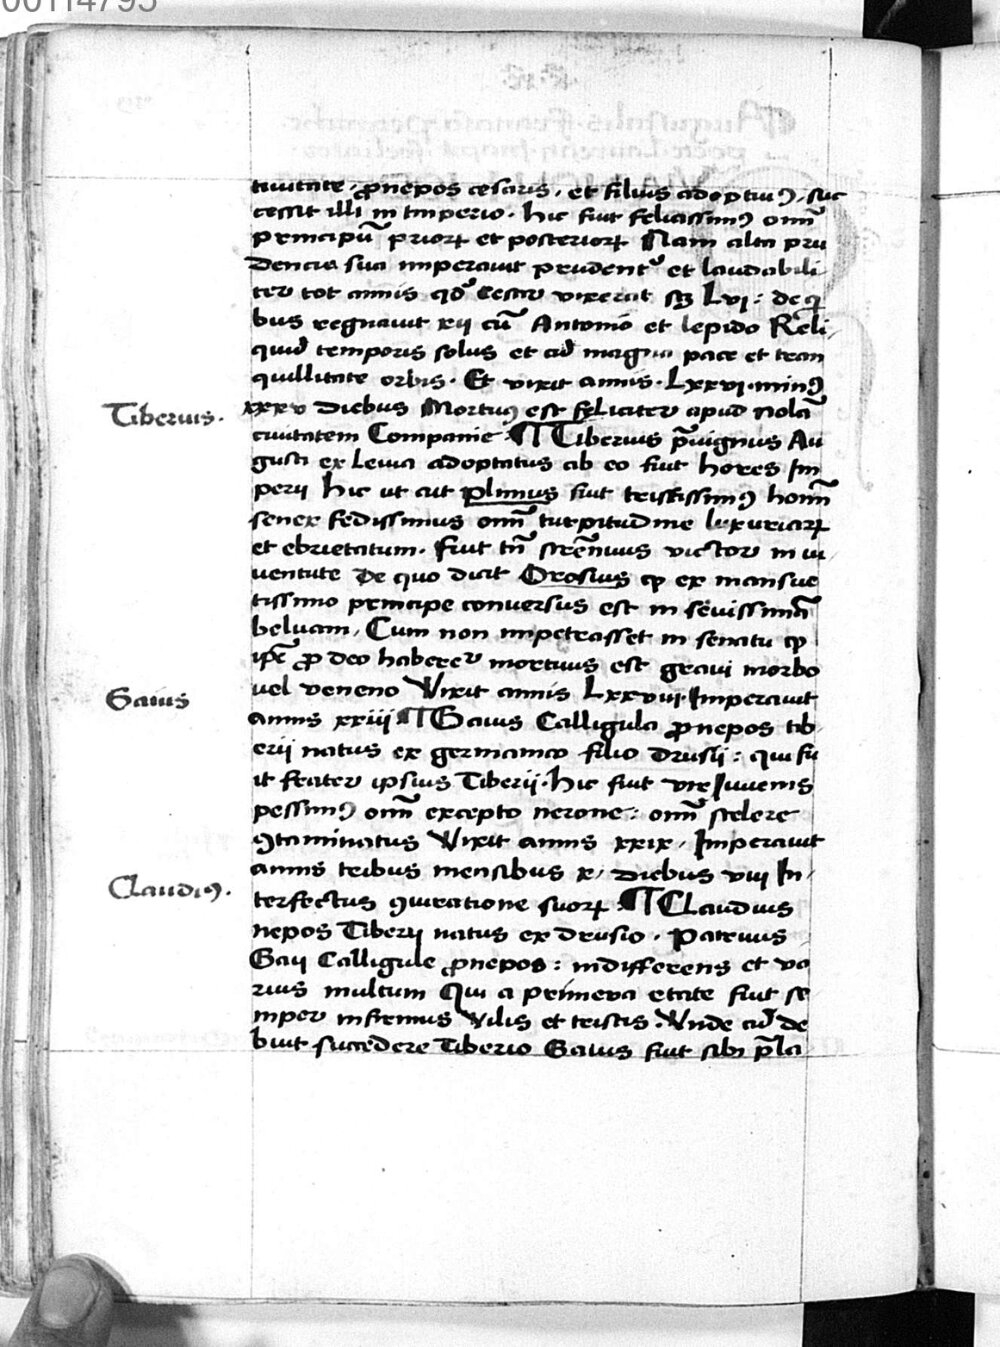 00114795
tiuitate, ꝓnepos cesaris, et filius adoptiuꝰ, suc
cessit illi in imperio. hic fuit felicissimꝰ om̅
principu̅ priorꝝ et posteriorꝝ Nam alta pru
dencia sua imperauit prudent᷒ et laudabili
ter tot annis qd̕ Cesar vixerat sꝫ Lvj: de qi
bus regnauit xij cu̅ Antonio et lepido Reli
quid temporis solus et cu̅ magna pace et tran
quillitate orbis. Et vixit annis. Lxxvi. minꝰ
Tiberius.
xxxv diebus Mortuꝰ est feliciter apud nola̅
ciuitatem Companie. ¶ Tiberius p̅uignus Au
gusti ex Leuia adoptatus ab eo fuit heres Im
perij hic ut ait Plinius fuit tristissimꝰ homi̅
senex fedissimus om̅ turpitudine luxuriarꝝ
et ebrietatum. Fuit tn̅ stre̅nuus victor in iu
uentute De quo dicit Orosius ꝙ ex mansue
tissimo principe conuersus est in seuissima̅
beluam, Cum non impetrasset in senatu ꝙ
ip̅e ꝓ deo haberet᷒ mortuus est graui morbo
Gaius
uel veneno Vixit annis Lxxviij. Imperauit
annis xxiii ¶ Gaius Calligula ꝓnepos tib
erii natus ex germanico filio drusij: qui fu
it frater ipsius Tiberij. hic fuit vir Iuuenis
pessimꝰ om̅ excepto nerone: om̅ scelere
ꝯtaminatus Vixit annis xxix, Imperauit
Claudiꝰ.
annis tribus mensibus x, diebus viij In
terfectus ꝯiuratione suorꝝ. ¶ CLaudius
nepos Tiberij natus ex drusio. Patruus
Gaij Calligule ꝓnepos: indifferens et va
rius multum Qui a primeva etate fuit se
mper infirmus Vilis et tristis. Vnde cu̅ de
buit succedere Tiberio Gaius fuit sibi p̅la